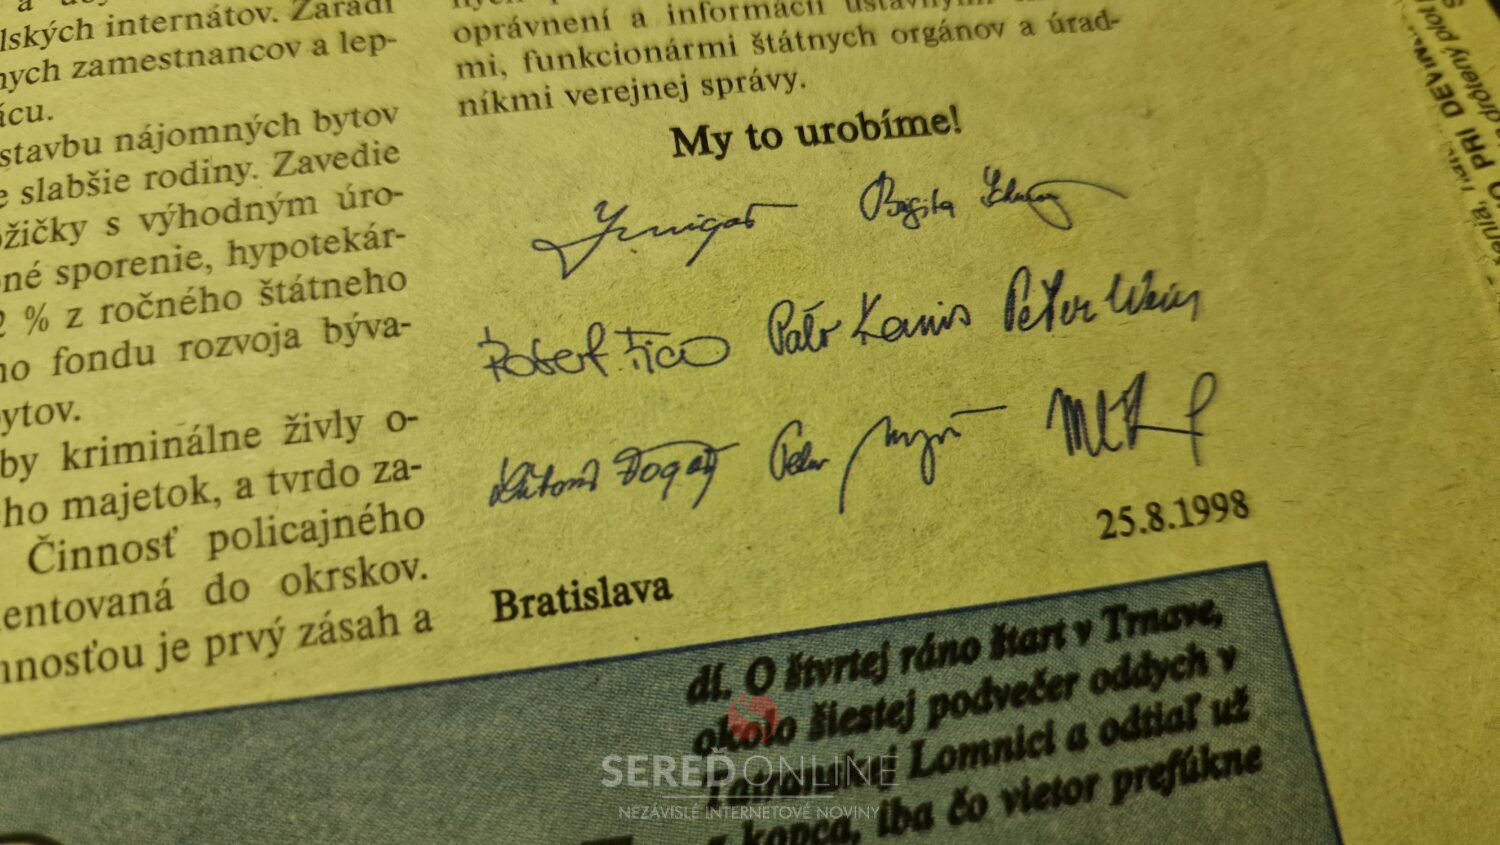 lských internátov. Zaradí
nych zamestnancov a lep-
ácu.
stavbu nájomných bytov
e slabšie rodiny. Zavedie
ožičky s výhodným úro-
né sporenie, hypotekár-
2 % z ročného štátneho
ho fondu rozvoja býva-
bytov.
by kriminálne živly o-
ho majetok, a tvrdo za-
Činnosť policajného
entovaná do okrskov.
nnosťou je prvý zásah a
oprávnení a informácií ústavnými
mi, funkcionármi štátnych orgánov a úrad-
níkmi verejnej správy.
My to urobíme!
Brigita
Robert Fico Pavol Kanis Peter Weiss
Ľubomír Fogaš Peter
25.8.1998
Bratislava
dí. O štvrtej ráno štart v Trnave,
okolo šiestej podvečer oddych v
Lomnici a odtiaľ už
kopca, iba čo vietor prefúkne
PRI DEVÍN
drôtený plot
SEREĎONLINE
NEZÁVISLÉ INTERNETOVÉ NOVINY